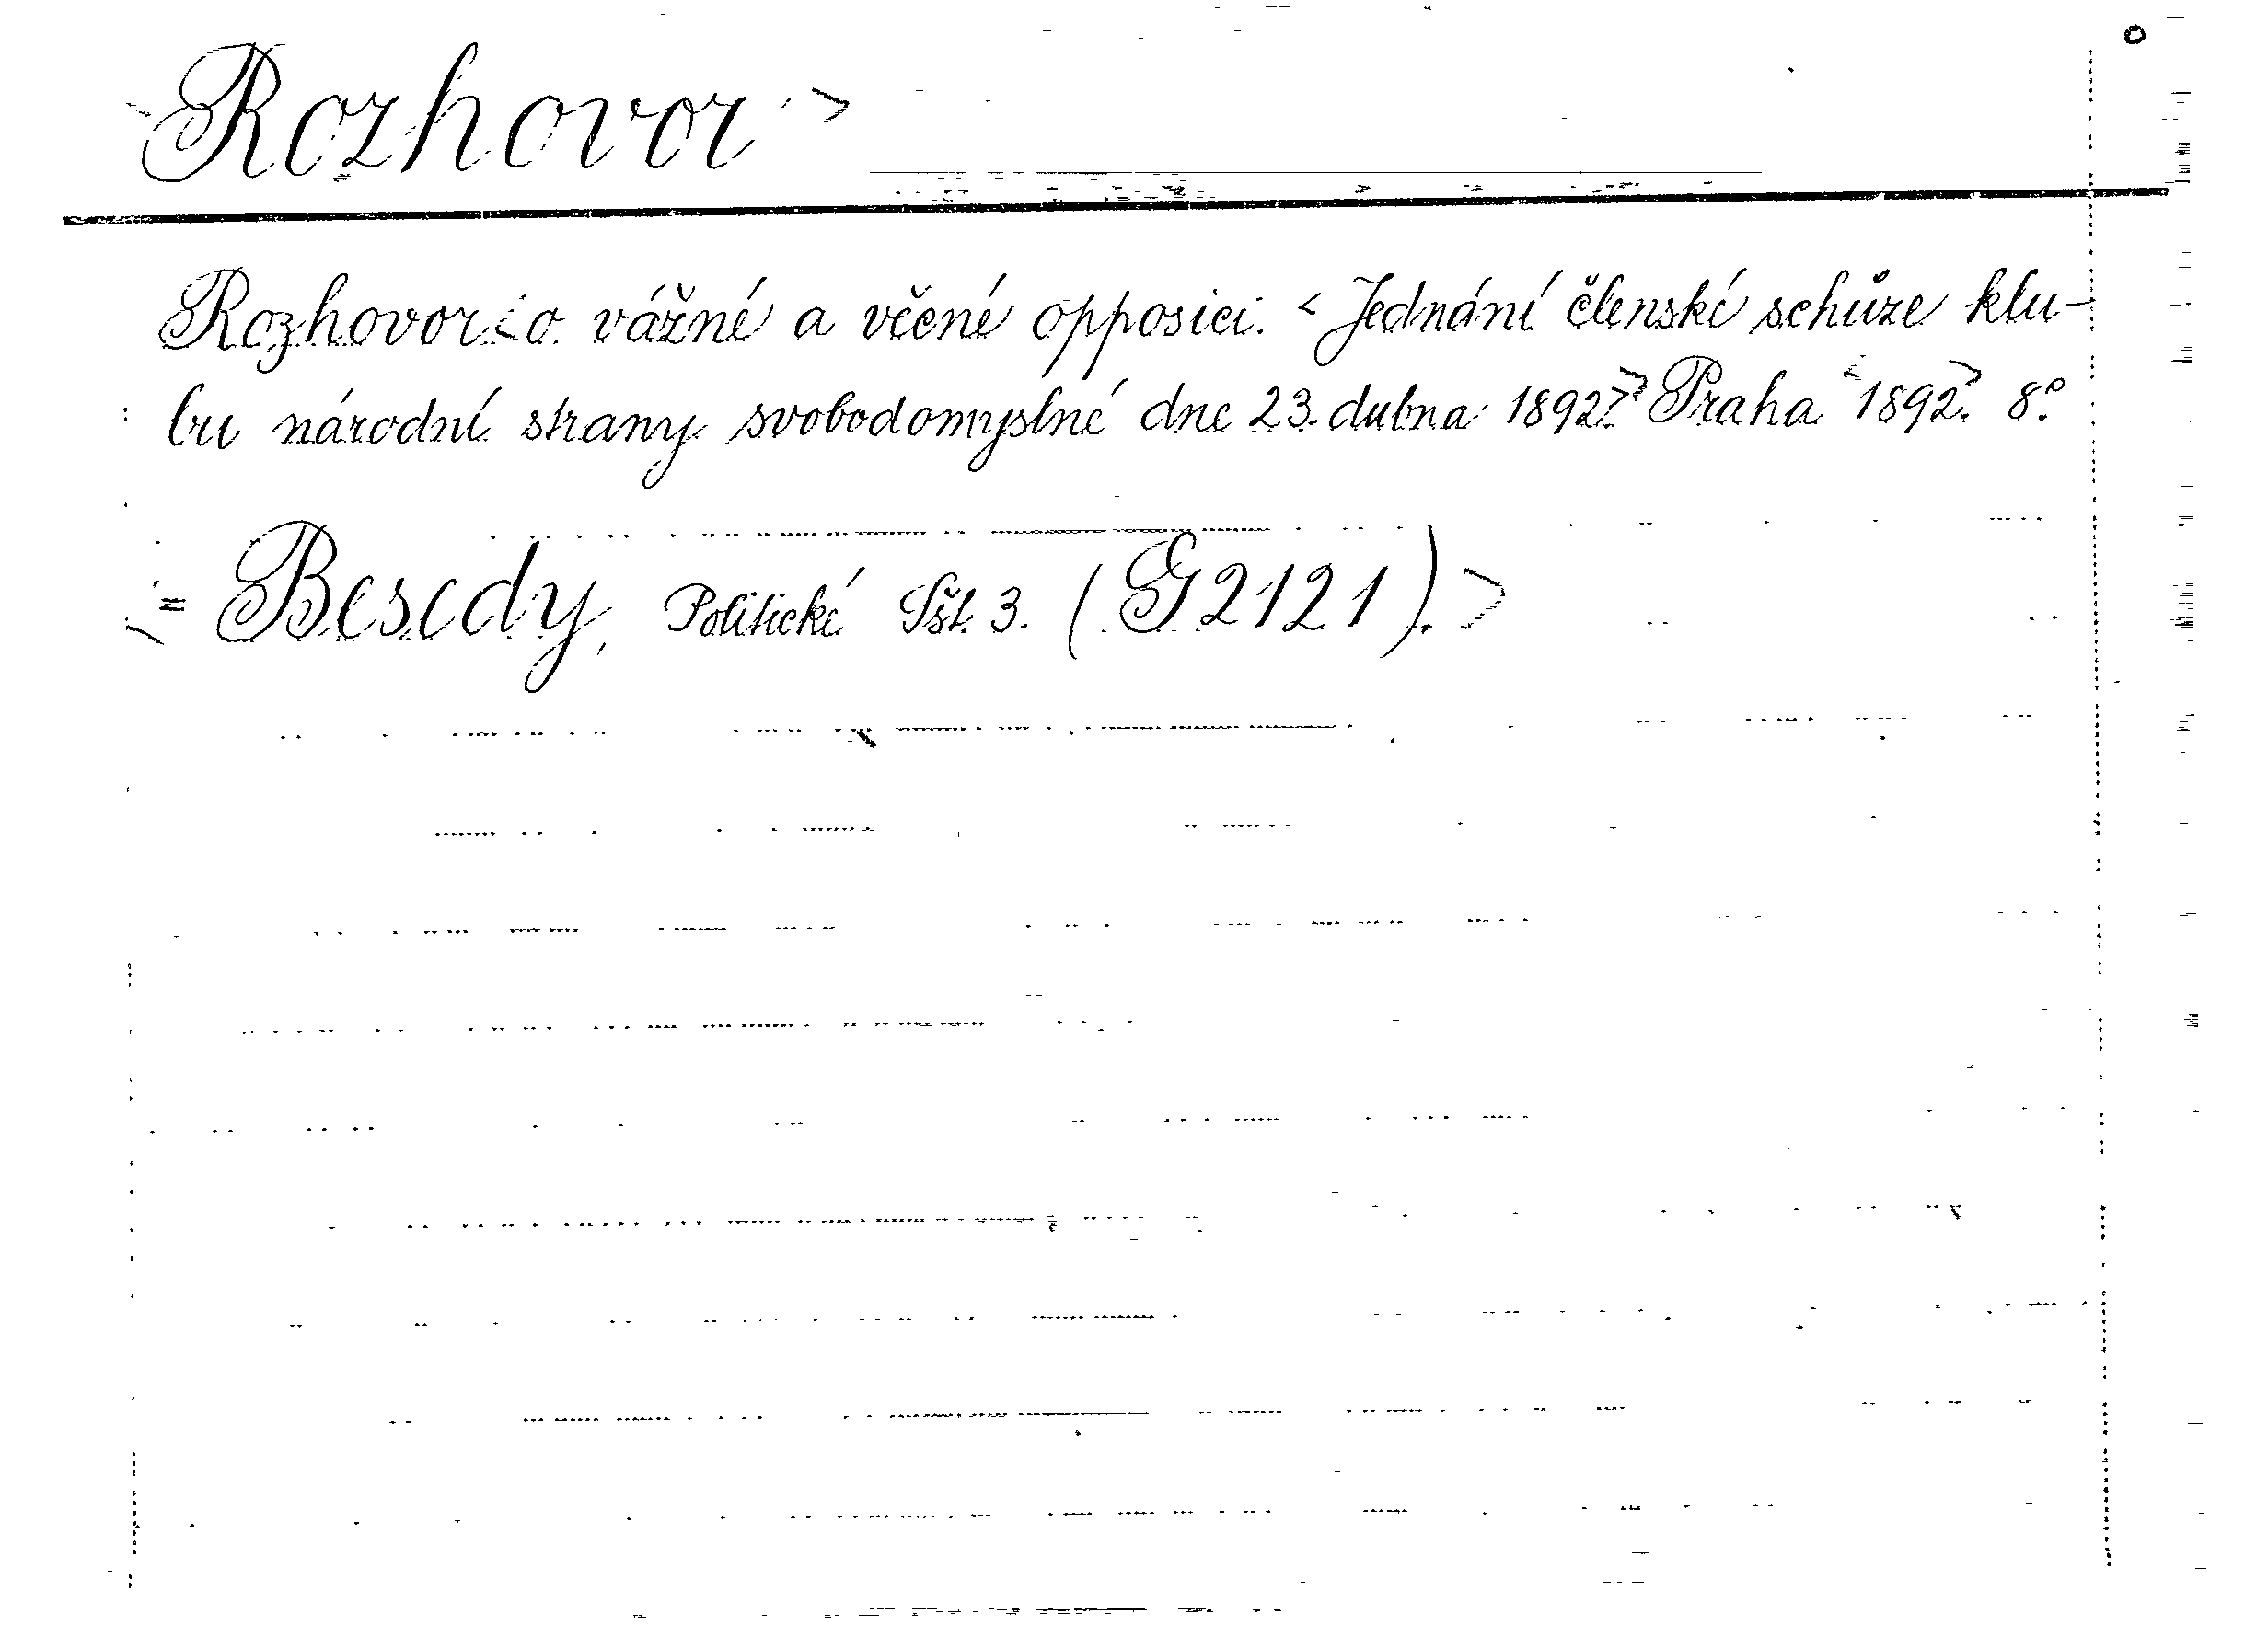 Rozhovor >
Rozhovor < o vážné a věcné opposici. < Jednání členské schůze klu-
bu národní strany svobodomyslné dne 23. dubna 1892.> Praha <1892>. 8.°
= Besedy, Politické Sšt. 3. (G 2121). >